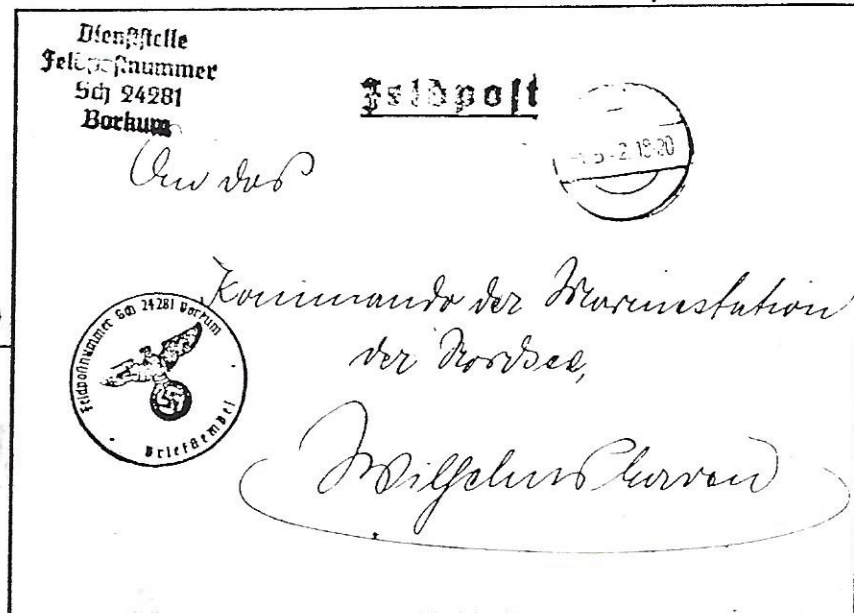 Dienststelle
Feldpostnummer
Sch 24281
Borkum
Feldpost
18-20
An das
Kommando der Marinestation
der Nordsee,
Wilhelmshaven
Feldpostnummer Sch 24281 Borkum
Briefstempel